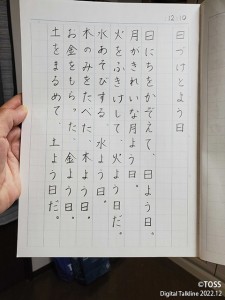 12-19
日づけとよう日
日にちをかぞえて、日よう日。
月がきれいな月よう日。
火をふきけして、火よう日だ。
水あそびする、水よう日。
木のみをたべた、木よう日。
お金をもらった、金よう日。
土をまるめて、土よう日だ。
©TOSS
Digital Talkline 2022.12